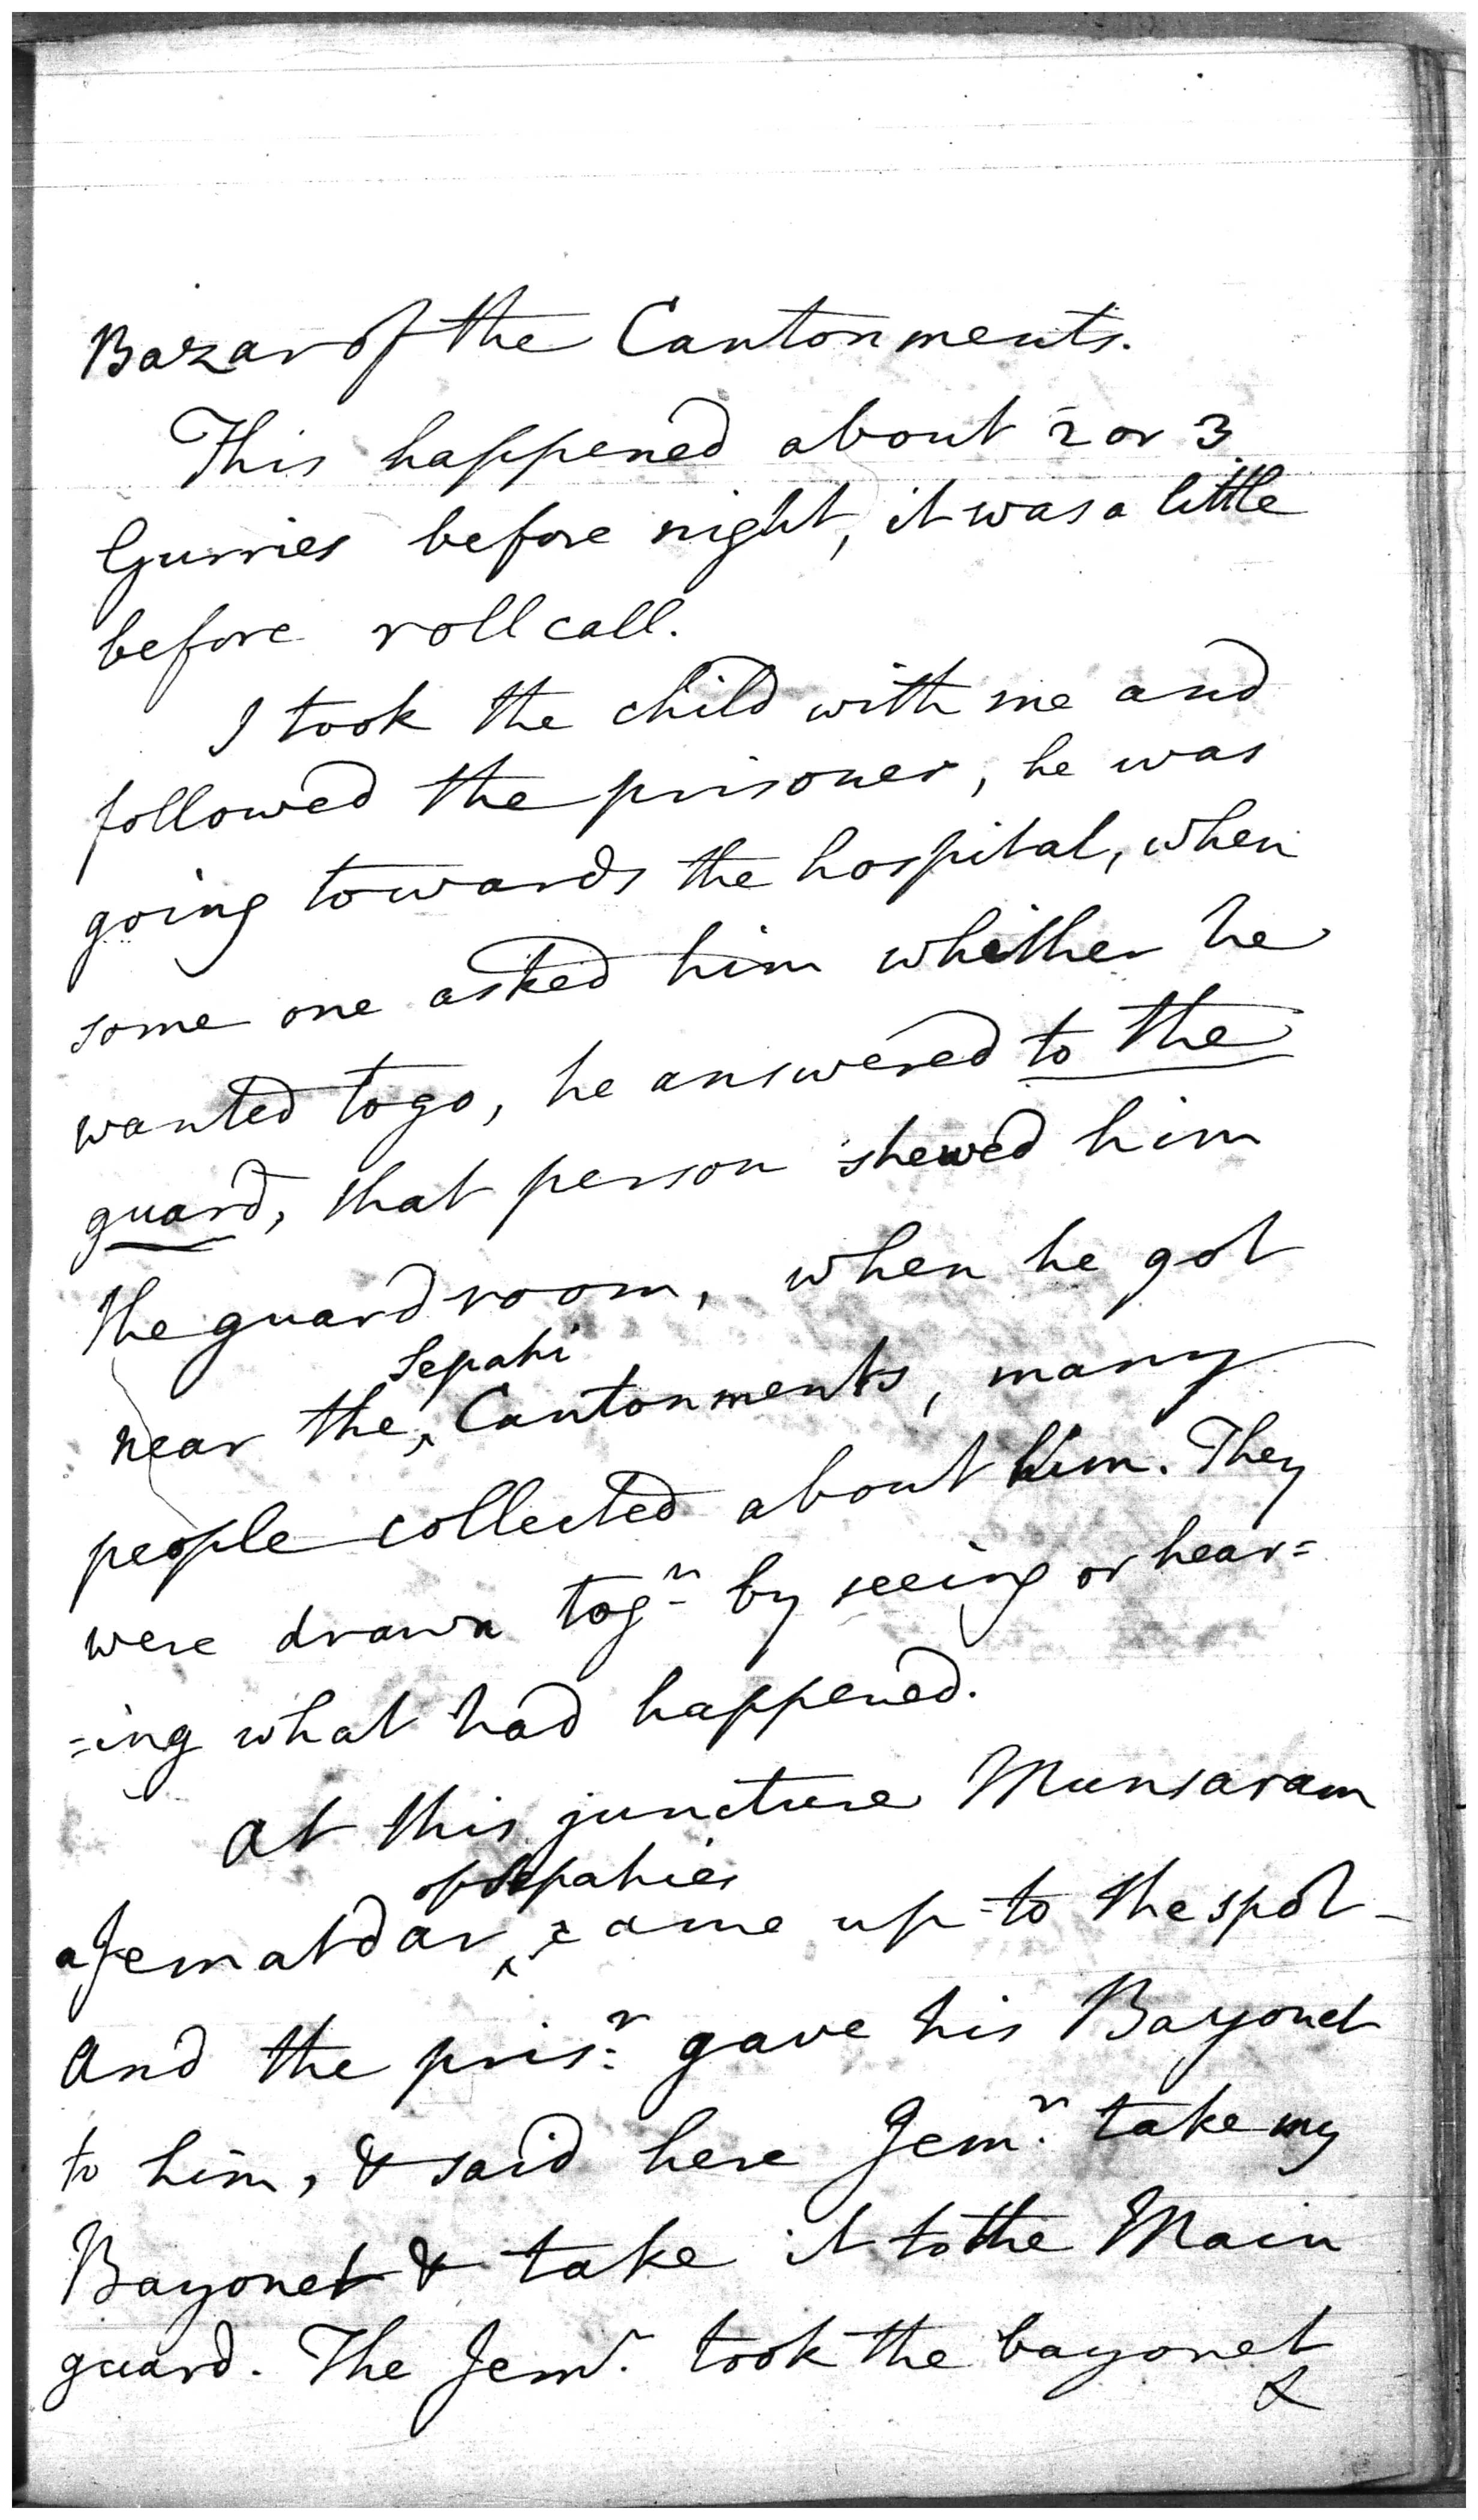 Bazar of the Cantonments.
This happened about 2 or 3
Gurries before night, it was a little
before roll call.
I took the child with me and
followed the prisoner, he was
going towards the hospital, when
some one asked him whither he
wanted to go, he answered to the
guard, that person shewed him
the guard room, when he got
Sepahi
near the ^ Cantonments, many
people collected about him. They
were drawn togr by seeing or hear=
=ing what had happened.
At this juncture Munsaram
of Sepahies
a Jematdar ^ came up to the spot
and the prisr gave his Bayonet
to him, & said here Jemr. take my
Bayonet & take it to the Main
guard. The Jemr. took the bayonet
&